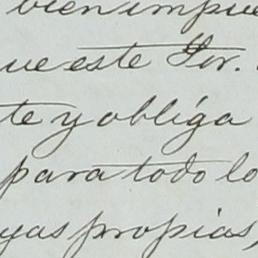 bien impue
ue este Sor.
te y obliga
para todo lo
yas propias,